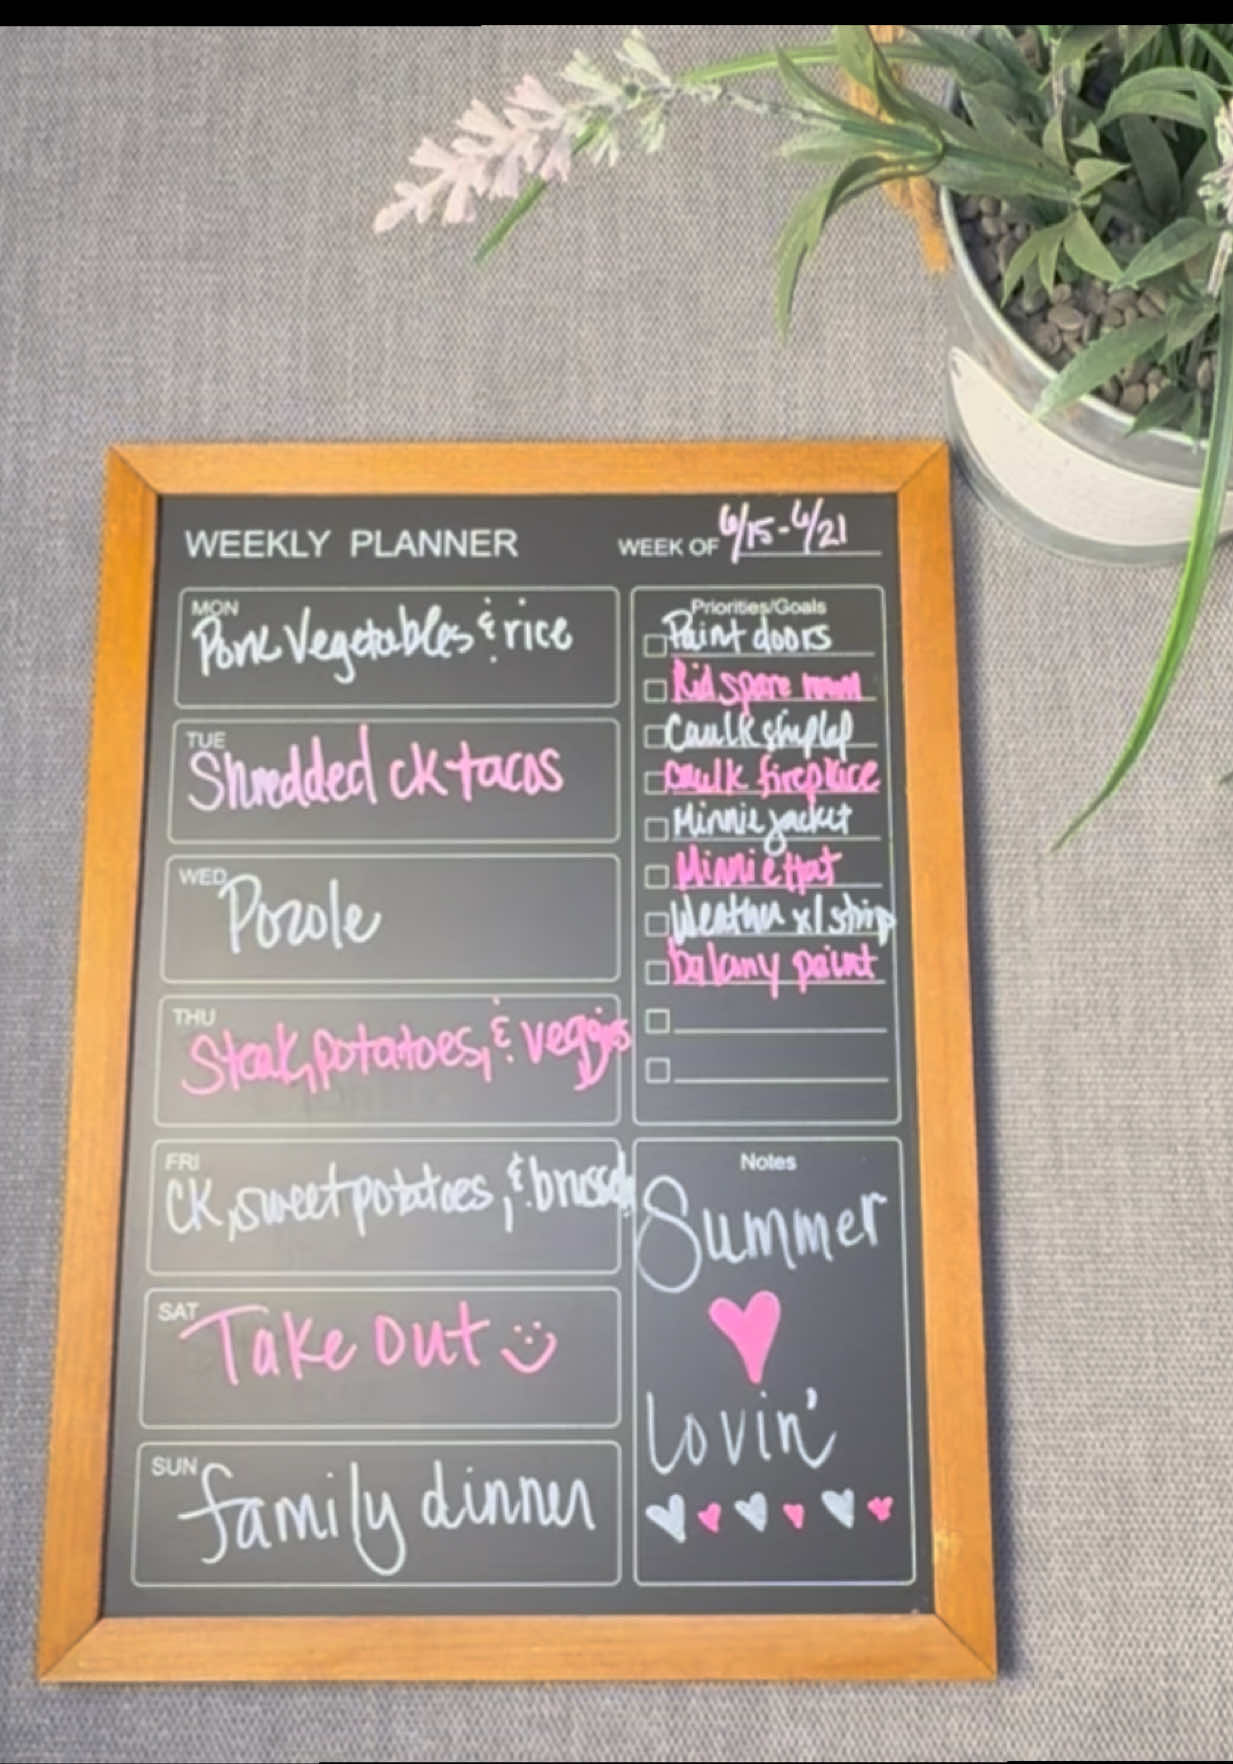 WEEKLY PLANNER
WEEK OF 6/15-6/21
MON
Pork Vegetables & rice
TUE
Shredded ck tacos
WED
Pozole
THU
Steak, potatoes, & veggies
FRI
CK, sweet potatoes, & brussels
SAT
Take out
SUN
family dinner
Priorities/Goals
Paint doors
Rid spare room
Caulk shiplap
caulk fireplace
Minnie jacket
Minnie Hat
Weather strip
balcony paint
Notes
Summer
Lovin'